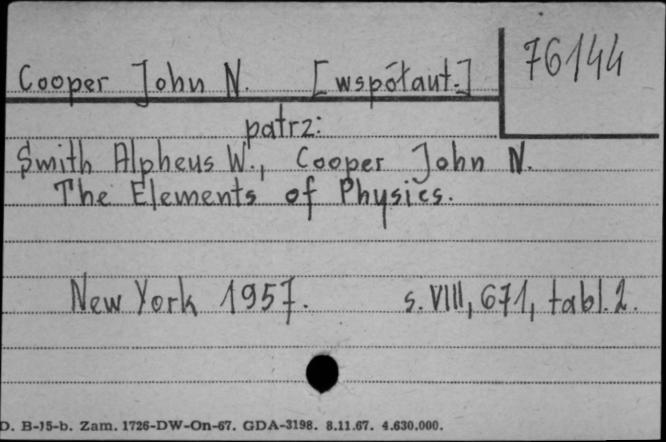 76144
Cooper John N. [współaut.]
patrz:
Smith Alpheus W., Cooper John N.
The Elements of Physics.
New York 1957. s. VIII, 671, tabl. 2.
D. B-15-b. Zam. 1726-DW-On-67. GDA-3198. 8.11.67. 4.630.000.